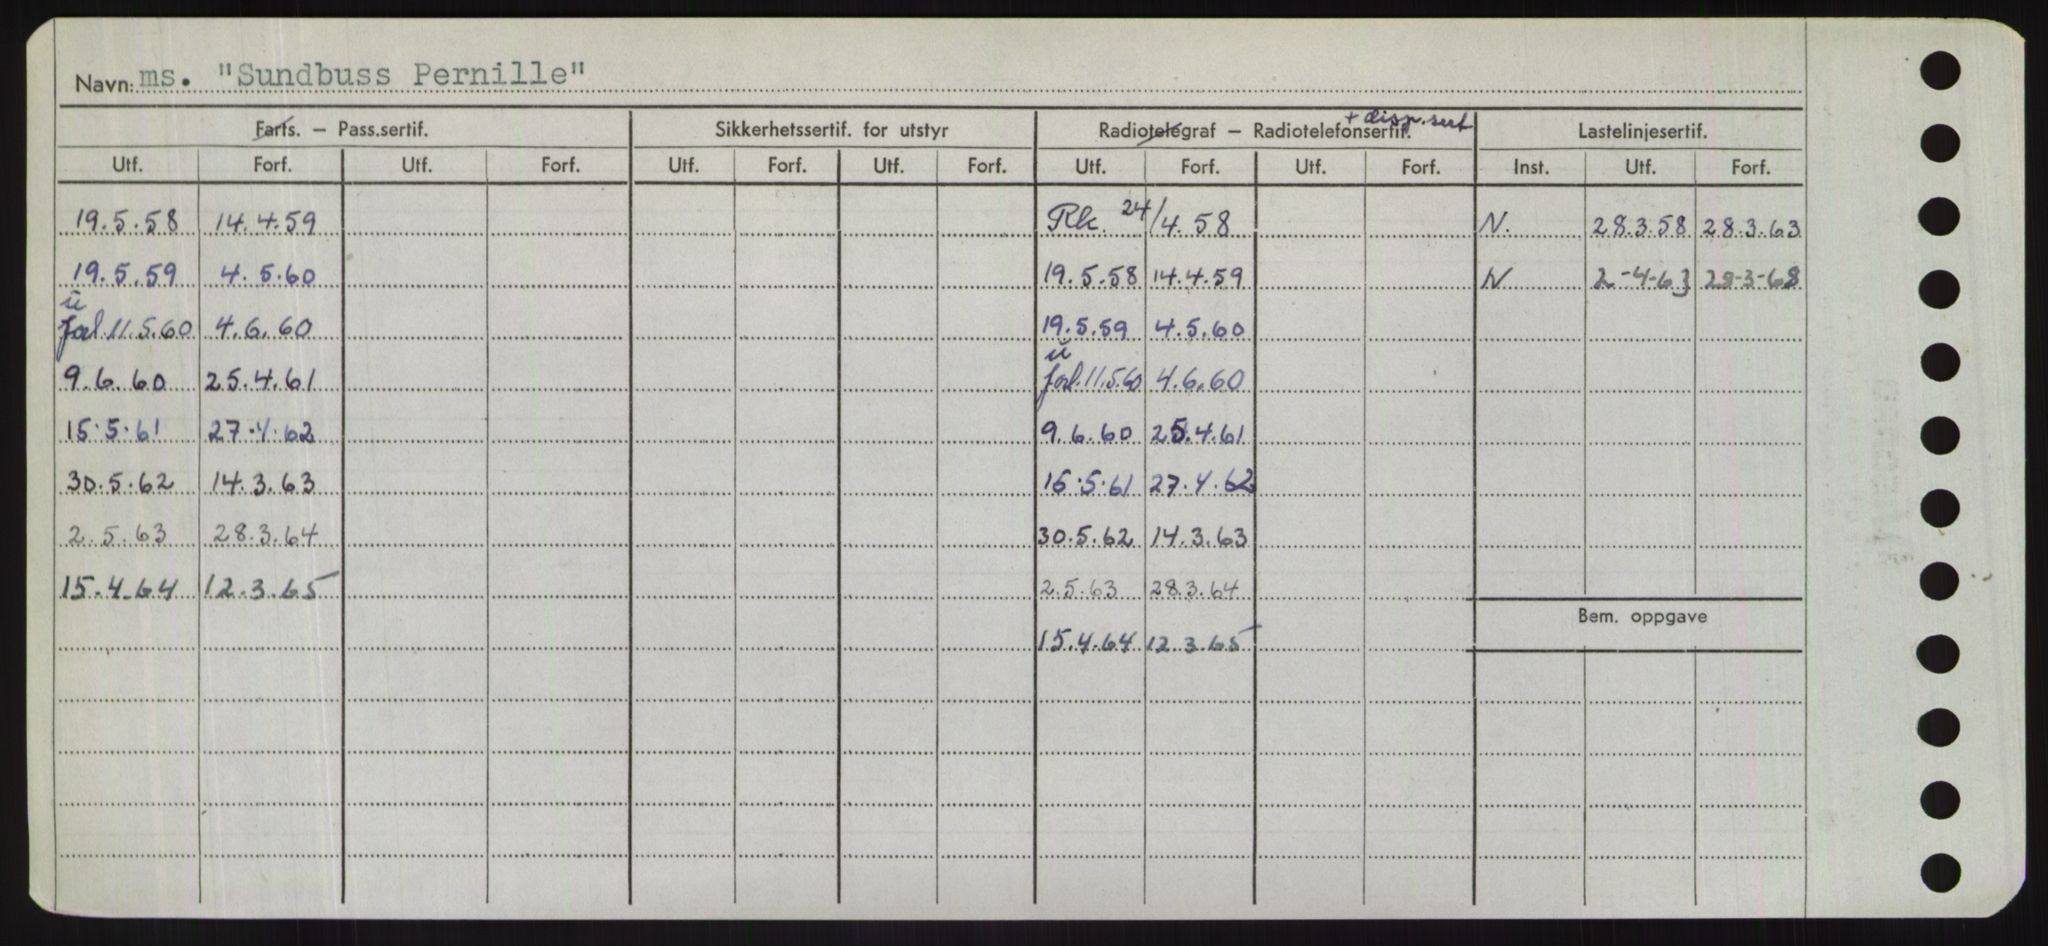 Navn: ms. "Sundbuss Pernille"
+ disp. sert
Farts. – Pass.sertif. Sikkerhetssertif. for utstyr Radiotelegraf – Radiotelefonsertif. Lastelinjesertif.
Utf. Forf. Utf. Forf. Utf. Forf. Utf. Forf. Utf. Forf. Utf. Forf. Inst. Utf. Forf.
19.5.58 14.4.59 Rk. 24/4.58 N. 28.3.58 28.3.63
19.5.59 4.5.60 19.5.58 14.4.59 N 2-4-63 28-3-68
u
forl. 11.5.60 4.6.60 19.5.59 4.5.60
u
9.6.60 25.4.61 forl. 11.5.60 4.6.60
15.5.61 27.4.62 9.6.60 25.4.61
30.5.62 14.3.63 15.5.61 27.4.62
2.5.63 28.3.64 30.5.62 14.3.63
15.4.64 12.3.65 2.5.63 28.3.64
Bem. oppgave
15.4.64 12.3.65